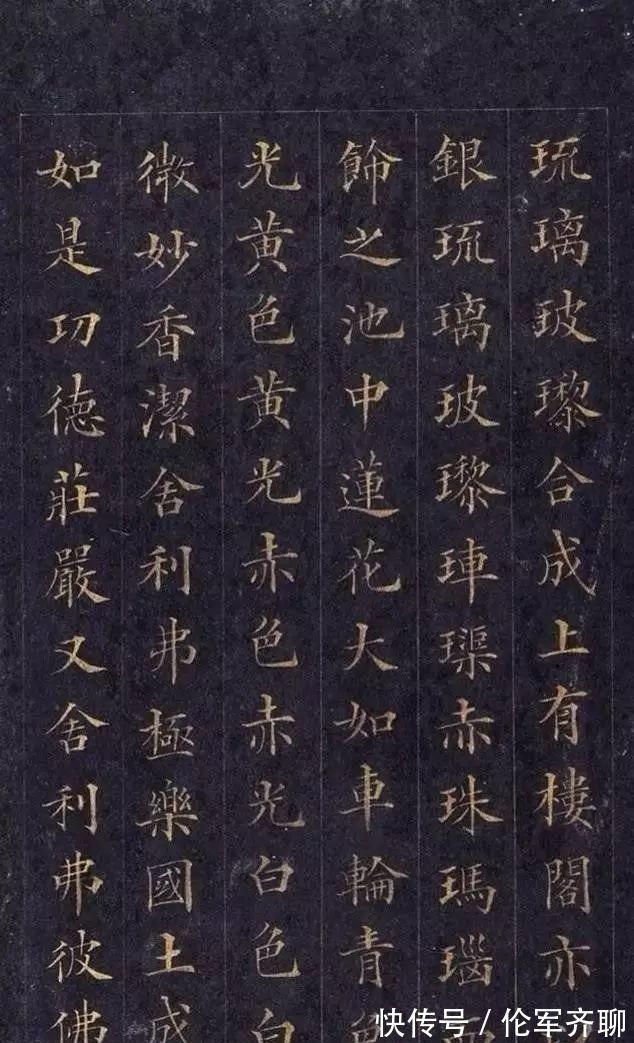 琉璃玻瓈合成上有樓閣亦
銀琉璃玻瓈硨磲赤珠瑪瑙
飾之池中蓮花大如車輪青色
光黄色黄光赤色赤光白色白
微妙香潔舍利弗極樂國土成
如是功德莊嚴又舍利弗彼佛
快传号/伦军齐聊